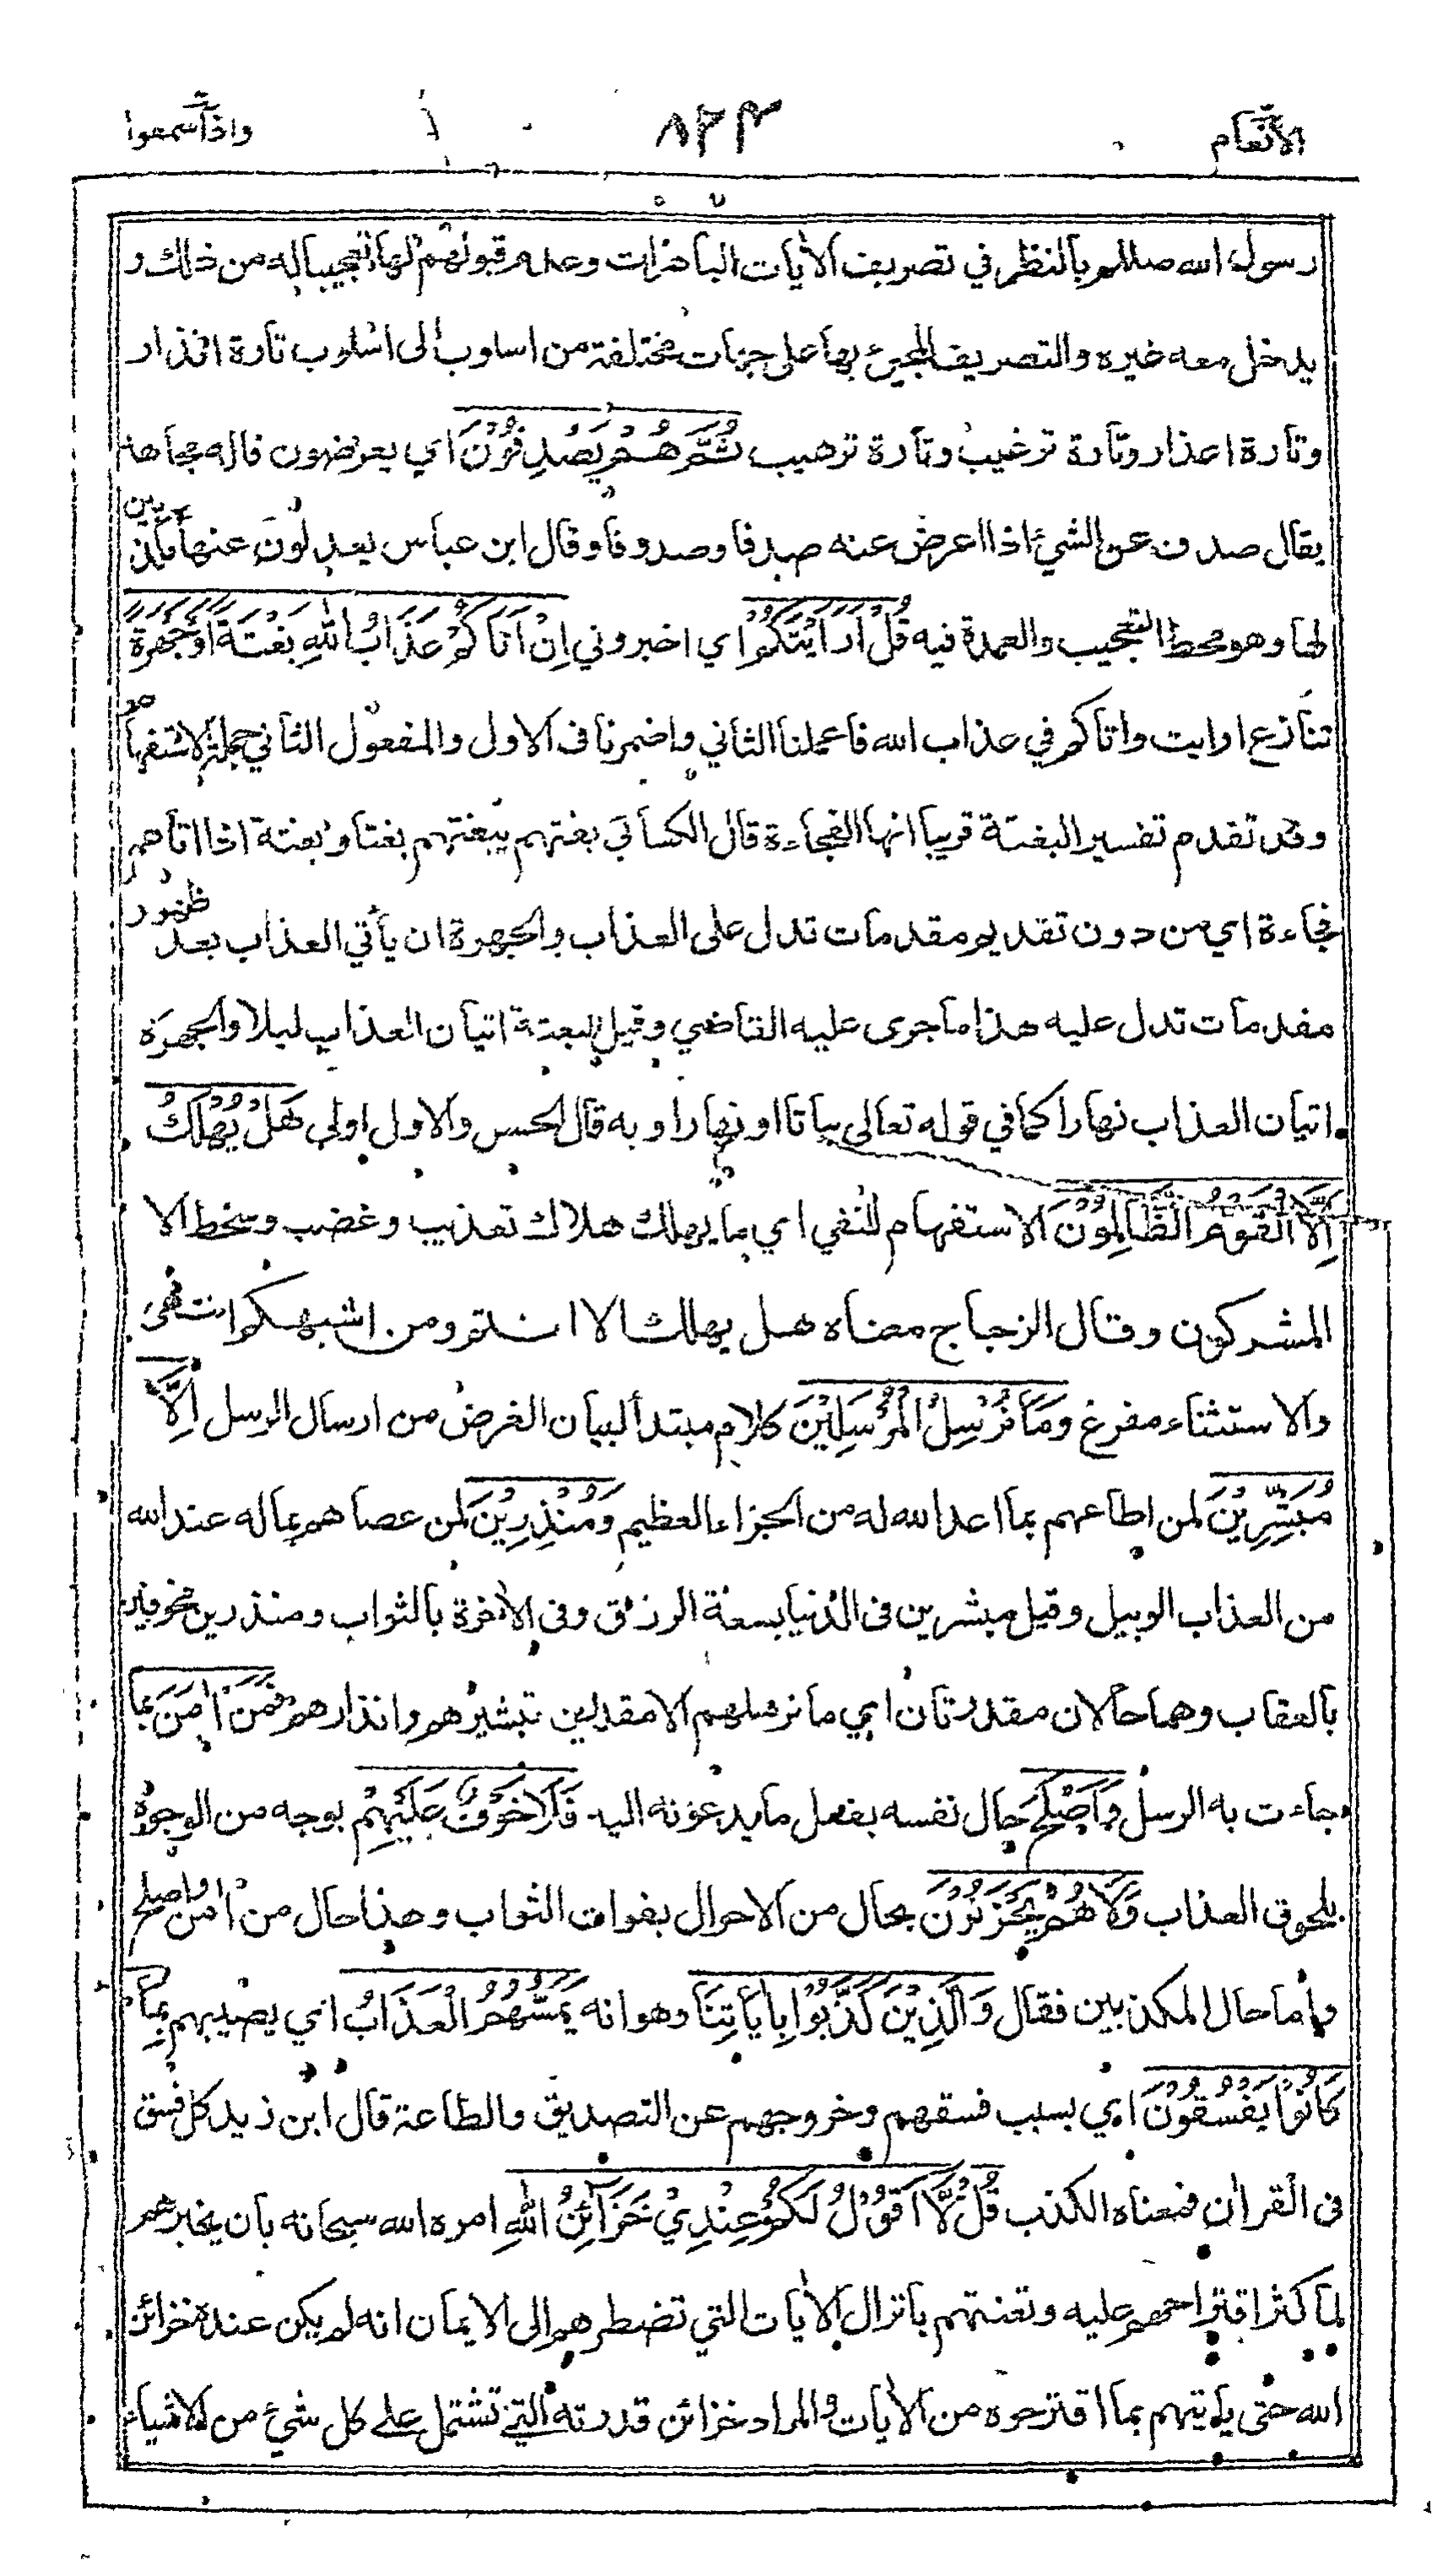 الأنعام ٨٢٣ واذا سمعوا
رسول الله صللم بالنظر في تصريف الأيات الباهرات وعدم قبولهم لها تعجيبا له من ذلك و
يدخل معه غيره والتصريف المجيئ بها على جهات مختلفة من اسلوب الى اسلوب تارة انذار
وتارة اعذار وتارة ترغيب وتارة ترهيب ثُمَّ هُمْ يَصْدِفُوْنَ اي يعرضون قاله مجاهد
يقال صدف عن الشيئ اذا اعرض عنه صدفا وصدوفا وقال ابن عباس يعدلون عنها مكذبين
لها وهو محط التعجيب والعمدة فيه قُلْ اَرَاَيْتَكُمْ اي اخبروني اِنْ اَتَاكُمْ عَذَابُ اللهِ بَغْتَةً اَوْ جَهْرَةً
تنازع ارايت واتاكم في عذاب الله فاعملنا الثاني واضمرنا فى الاول والمفعول الثاني جملة الاستفهام
وقد تقدم تفسير البغتة قريبا انها الفجاءة قال الكسائي بغتهم يبغتهم بغتا وبغتة اذا اتاهم
فجاءة اي من دون تقديم مقدمات تدل على العذاب والجهرة ان يأتي العذاب بعد ظهور
مقدمات تدل عليه هذا ما جرى عليه القاضي وقيل البغتة اتيان العذاب ليلا والجهرة
اتيان العذاب نهارا كما في قوله تعالى بياتا او نهارا وبه قال الحسن والاول اولى هَلْ يُهْلَكُ
اِلَّا الْقَوْمُ الظَّالِمُوْنَ الاستفهام للنفي اي ما يهلك هلاك تعذيب وغضب وسخط الا
المشركون وقال الزجاج معناه هل يهلك الا انتم ومن اشبهكم انتهى
والاستثناء مفرغ وَمَا نُرْسِلُ الْمُرْسَلِيْنَ كلام مبتدأ لبيان الغرض من ارسال الرسل اِلَّا
مُبَشِّرِيْنَ لمن اطاعهم بما اعد الله له من الجزاء العظيم وَمُنْذِرِيْنَ لمن عصاهم بماله عند الله
من العذاب الوبيل وقيل مبشرين فى الدنيا بسعة الرزق وفى الأخرة بالثواب ومنذرين مخوفين
بالعقاب وهما حالان مقدرتان اي ما نرسلهم الا مقدرين تبشيرهم وانذارهم فَمَنْ اٰمَنَ بما
جاءت به الرسل وَاَصْلَحَ حال نفسه بفعل ما يدعونه اليه فَلَا خَوْفٌ عَلَيْهِمْ بوجه من الوجوه
بلحوق العذاب وَلَا هُمْ يَحْزَنُوْنَ بحال من الاحوال بفوات الثواب وهذا حال من اٰمن واصلح
واما حال المكذبين فقال وَالَّذِيْنَ كَذَّبُوْا بِاٰيَاتِنَا وهو انه يَمَسُّهُمُ الْعَذَابُ اي يصيبهم بِمَا
كَانُوْا يَفْسُقُوْنَ اي بسبب فسقهم وخروجهم عن التصديق والطاعة قال ابن زيد كل فسق
فى القراٰن فمعناه الكذب قُلْ لَّا اَقُوْلُ لَكُمْ عِنْدِيْ خَزَآئِنُ اللهِ امره الله سبحانه بان يخبرهم
لما كثر اقتراحهم عليه وتعنتهم بانزال الأيات التي تضطرهم الى الايمان انه لم يكن عنده خزائن
الله حتى يأتيهم بما اقترحوه من الأيات والمراد خزائن قدرته التي تشتمل على كل شيئ من الاشياء